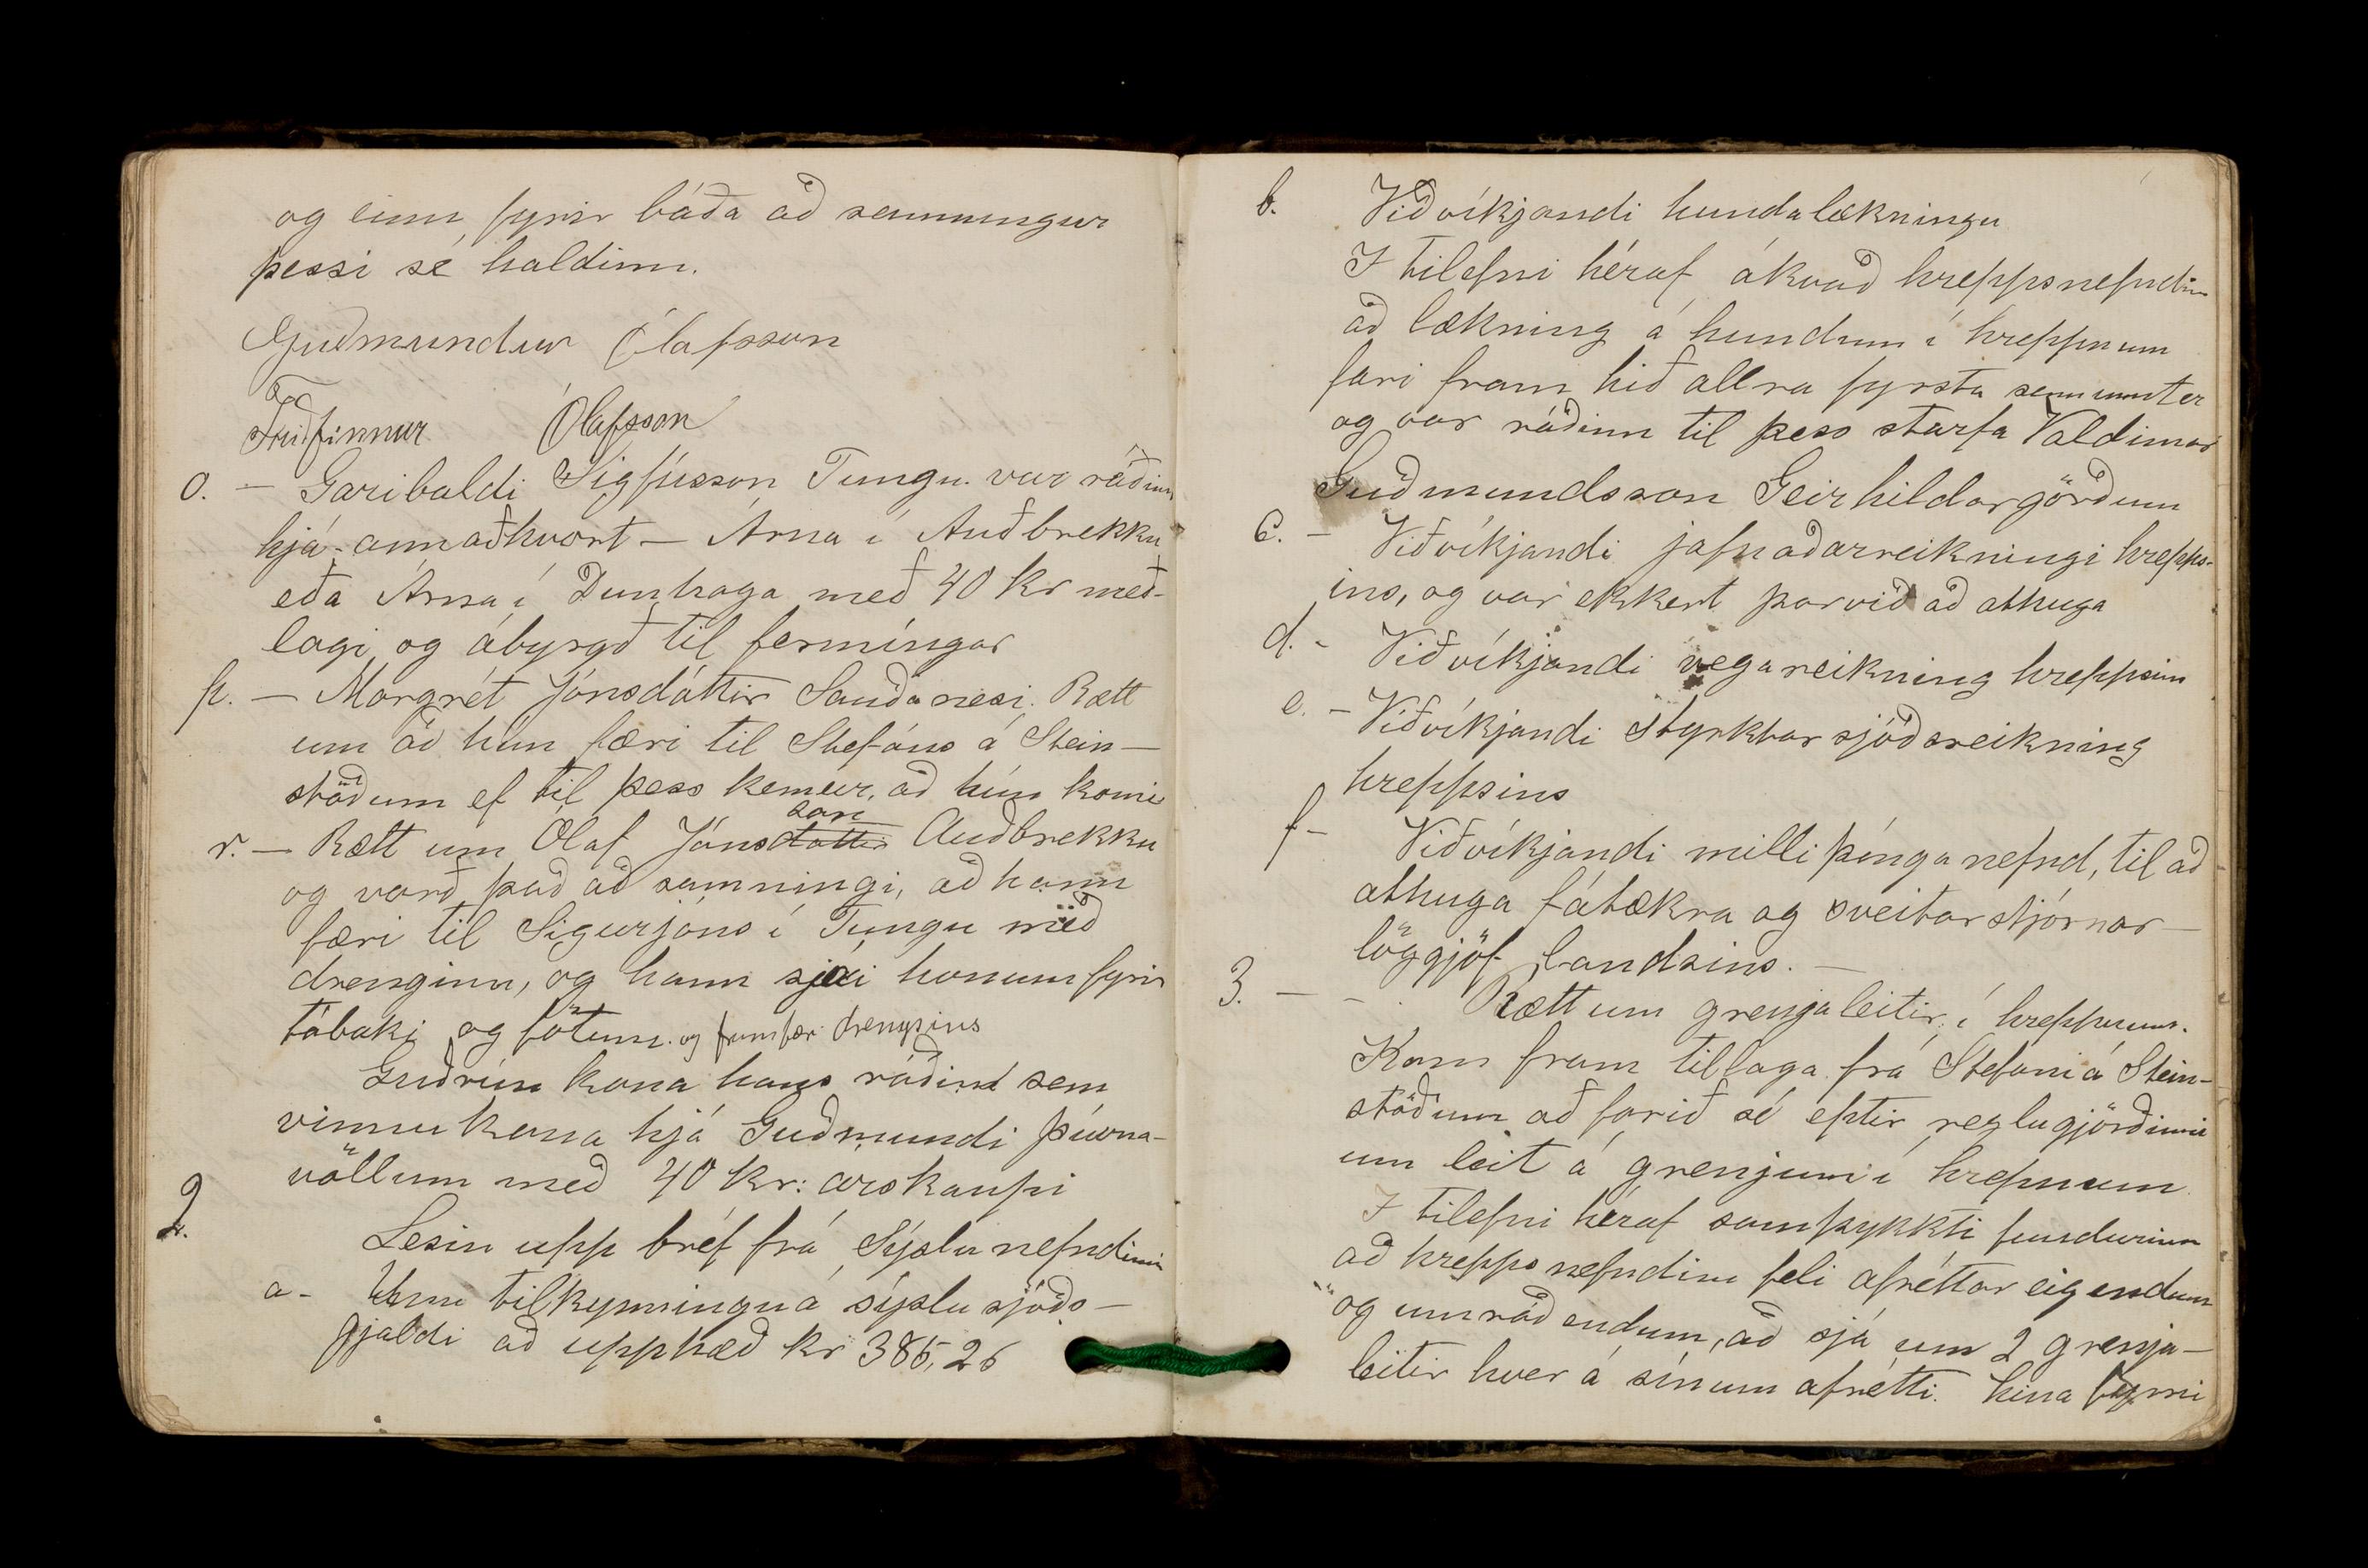 og einn fyrir báða að samningur
þessi sé haldinn.
Guðmundur Ólafsson
Friðfinnur Ólafsson
o. — Garibaldi Sigfússon Tungu var ráðinn
hjá - annaðhvort — Árna í Auðbrekku
eða Árna í Dunhaga með 40 kr með-
lagi og ábyrgð til fermíngar
p. — Margrét Jónsdóttir Sauðanesi. Rætt
um að hún færi til Stefáns á Stein-
stöðum ef til þess kemur, að hún komi
r. — Rætt um Ólaf Jónsdóttir son Auðbrekku
og varð það að samningi, að hann
færi til Sigurjóns í Tungu með
drenginn, og hann sjái honum fyrir
tóbaki og fötum. og framfær drengsins
Guðrún kona hans ráðin sem
vinnukona hjá Guðmundi Þúfna-
völlum með 40 kr: árskaupi
2. Lesin upp bréf frá Sýslunefndinni
a - Um tilkynningu á sýslusjóðs-
gjaldi að upphæð kr 385,26
b. Viðvíkjandi hundalækningu
I tilefni héraf ákvað hreppsnefndin
að lækning á hundum í hreppnum
fari fram hið allra fyrsta sem unnt er
og var ráðinn til þess starfa Valdimar
Guðmundsson Geirhildargörðum
c. — Viðvíkjandi jafnaðarreikningi hrepps-
ins, og var ekkert þarvið að athuga
d. - Viðvíkjandi vegareikning hreppsins
e. — Viðvíkjandi Styrktarsjóðsreikning
hreppsins
f — Viðvíkjandi milliþínganefnd, til að
athuga fátækra og sveitarstjórnar-
löggjöf landsins. —
3. — - . Rætt um grenjaleitir í hreppnum.
Kom fram tillaga frá Stefáni á Stein-
stöðum að farið sé eftir reglugjörðinni
um leit á grenjum í hrepnum
I tilefni héraf samþykkti fundurinn
að hreppsnefndin feli afréttareigendum
og umráðendum, að sjá um 2 grenja-
leitir hver á sínum afrétti. hina fyrri